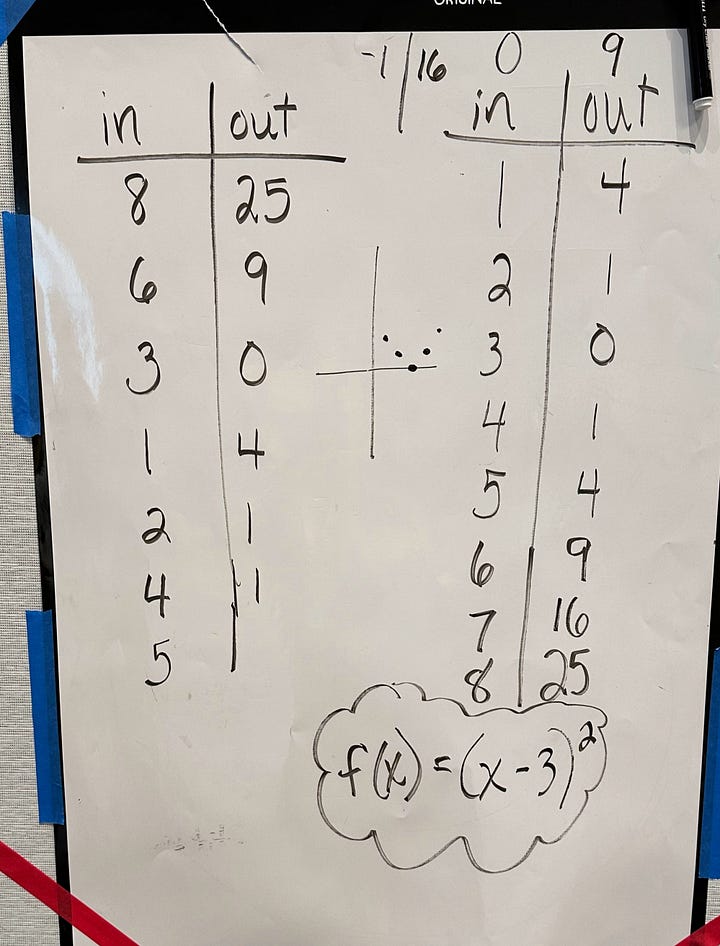 ORIGINAL
in | out
8 | 25
6 | 9
3 | 0
1 | 4
2 | 1
4 | 1
5 |
-1 | 16
0 9
in | out
1 | 4
2 | 1
3 | 0
4 | 1
5 | 4
6 | 9
7 | 16
8 | 25
f(x) = (x-3)²